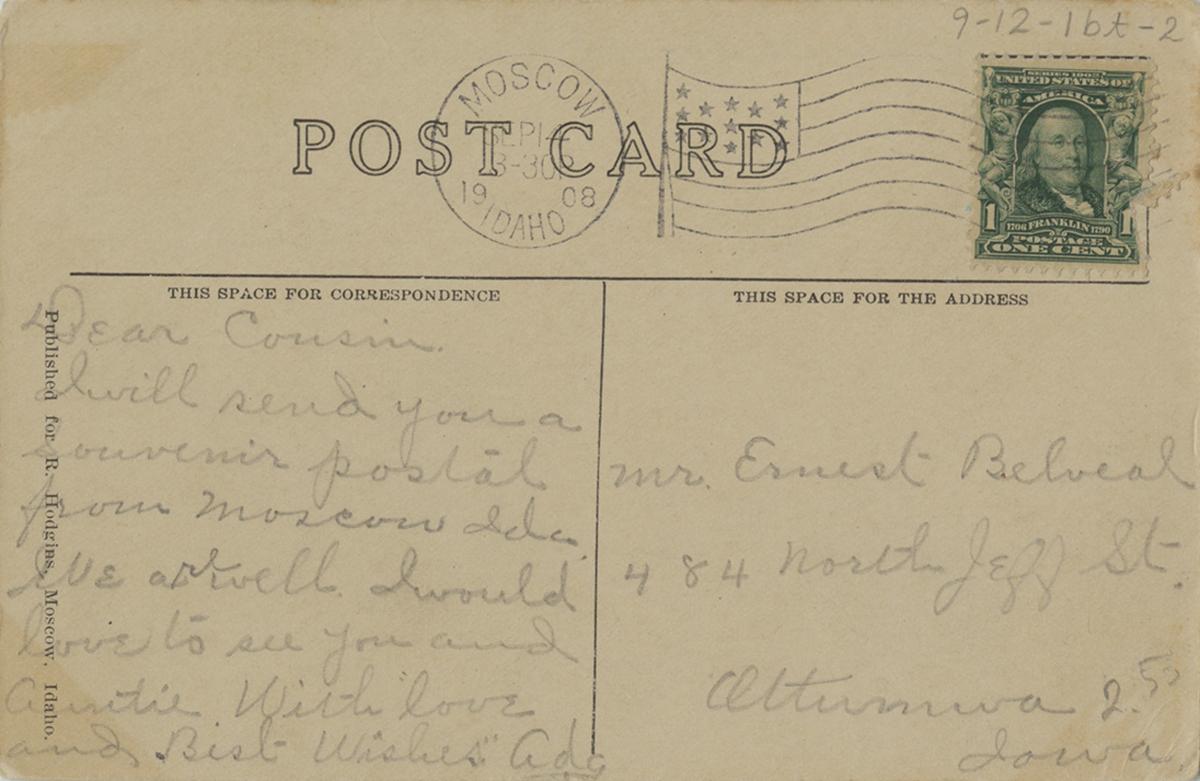 9-12-16t-2
POST CARD
MOSCOW
SEP 1
3-30P
19 08
IDAHO
SERIES 1902
UNITED STATES OF
AMERICA
1 1
1706 FRANKLIN 1790
POSTAGE
ONE CENT
THIS SPACE FOR CORRESPONDENCE
THIS SPACE FOR THE ADDRESS
Published for R. Hodgins, Moscow, Idaho.
Dear Cousin.
I will send you a
souvenir postal
from Moscow Ida.
We ar well. I would
love to see you and
Auntie. With love
and Best Wishes" Ada
Mr. Ernest Belveal
484 North Jeff St.
Ottumwa
Iowa.
2.50